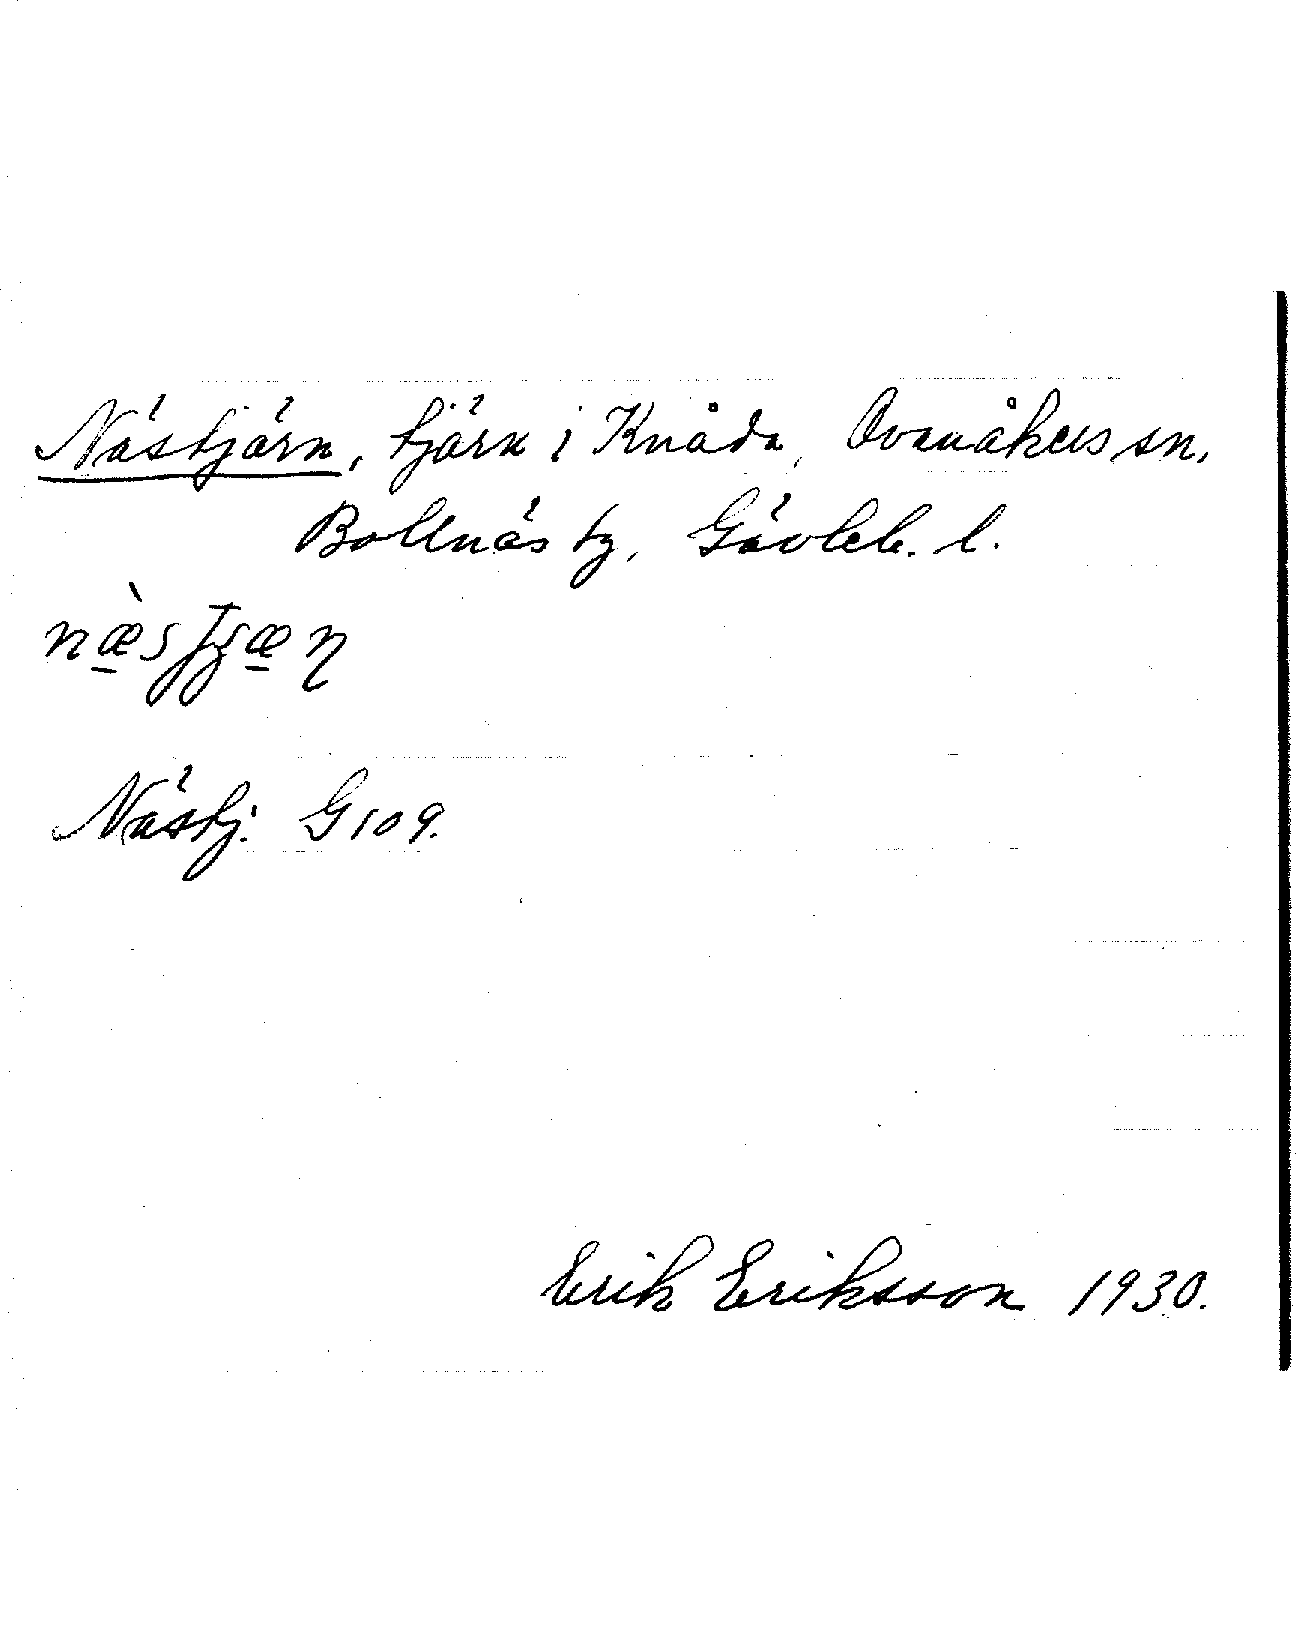 Nästjärn, tjärn i Knåda, Ovanåkers sn,
Bollnäs tg, Gävleb. l.
Nästj. G 109.
Erik Eriksson 1930.